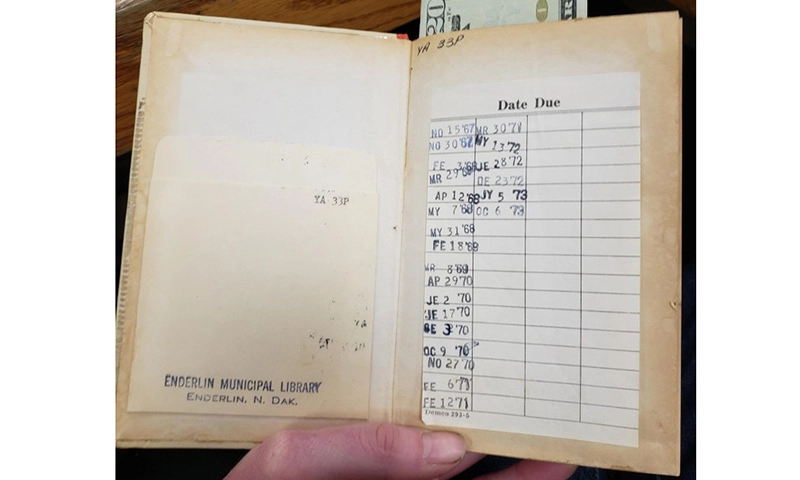 20
YA 33P
Date Due
NO 15'67
NO 30'67
FE 3'68
MR 29'68
AP 12'68
MY 7'68
MY 31'68
FE 18'69
MR 8'69
AP 29'70
JE 2 '70
JE 17'70
SE 3 '70
OC 9 '70
NO 27'70
FE 12'71
Demco 293-5
MR 30'71
MY 13'72
JE 28'72
DE 23'72
JY 5 '73
OC 6 '73
YA 33P
ENDERLIN MUNICIPAL LIBRARY
ENDERLIN, N. DAK.